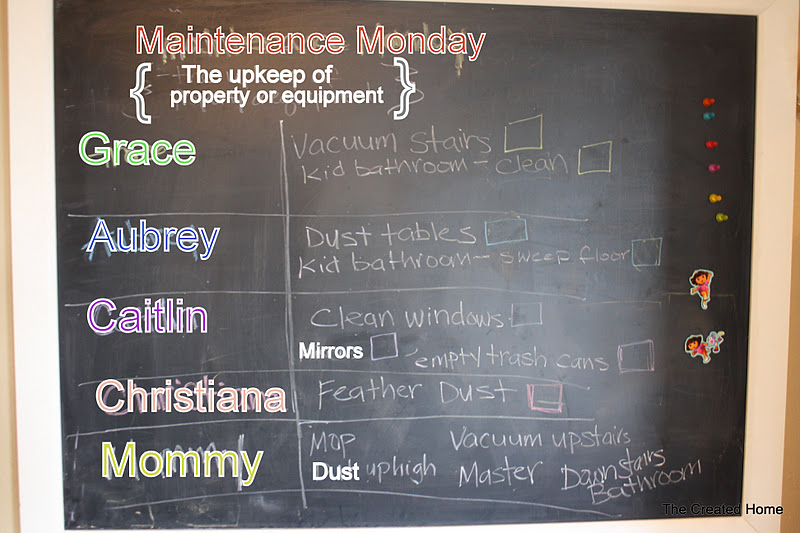 Maintenance Monday
{ The upkeep of
property or equipment }
Grace
Vacuum Stairs
Kid bathroom - clean
Aubrey
Dust tables
Kid bathroom - sweep floor
Caitlin
Clean windows
Mirrors empty trash cans
Christiana
Feather Dust
Mommy
Mop Vacuum upstairs
Dust up high Master Downstairs
Bathroom
The Created Home